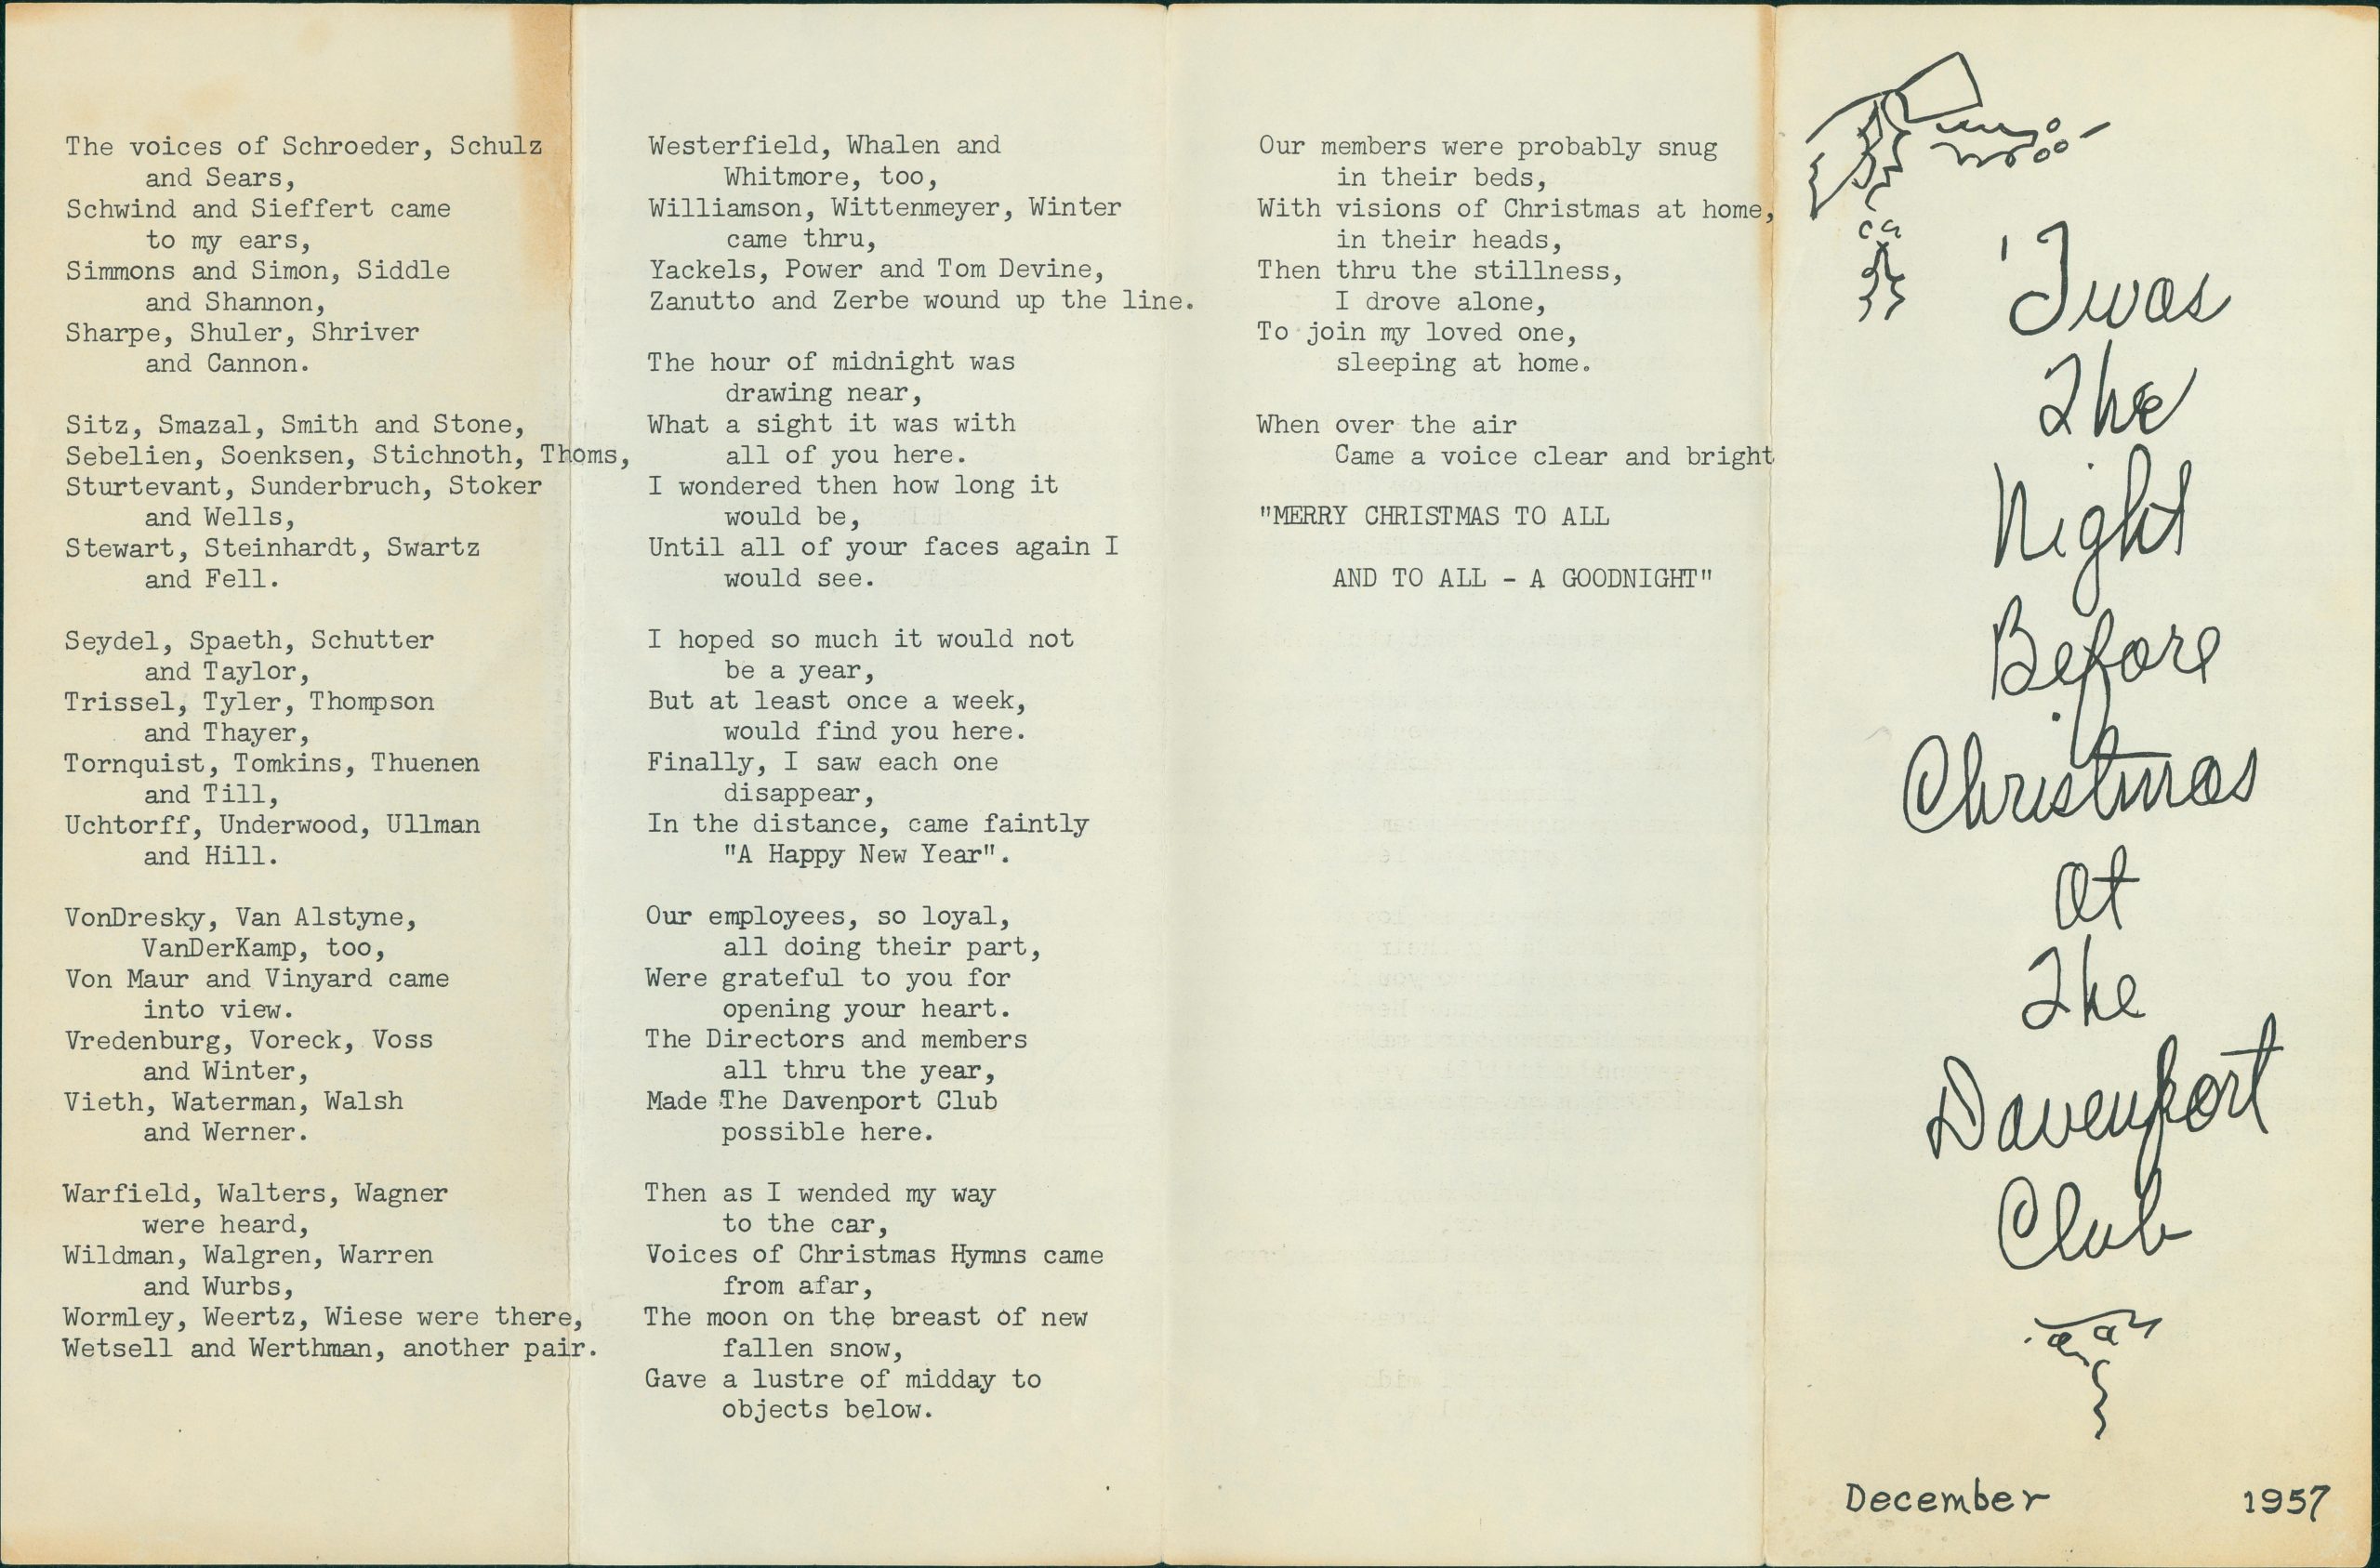 The voices of Schroeder, Schulz
and Sears,
Schwind and Sieffert came
to my ears,
Simmons and Simon, Siddle
and Shannon,
Sharpe, Shuler, Shriver
and Cannon.
Sitz, Smazal, Smith and Stone,
Sebelien, Soenksen, Stichnoth, Thoms,
Sturtevant, Sunderbruch, Stoker
and Wells,
Stewart, Steinhardt, Swartz
and Fell.
Seydel, Spaeth, Schutter
and Taylor,
Trissel, Tyler, Thompson
and Thayer,
Tornquist, Tomkins, Thuenen
and Till,
Uchtorff, Underwood, Ullman
and Hill.
VonDresky, Van Alstyne,
VanDerKamp, too,
Von Maur and Vinyard came
into view.
Vredenburg, Voreck, Voss
and Winter,
Vieth, Waterman, Walsh
and Werner.
Warfield, Walters, Wagner
were heard,
Wildman, Walgren, Warren
and Wurbs,
Wormley, Weertz, Wiese were there,
Wetsell and Werthman, another pair.
Westerfield, Whalen and
Whitmore, too,
Williamson, Wittenmeyer, Winter
came thru,
Yackels, Power and Tom Devine,
Zanutto and Zerbe wound up the line.
The hour of midnight was
drawing near,
What a sight it was with
all of you here.
I wondered then how long it
would be,
Until all of your faces again I
would see.
I hoped so much it would not
be a year,
But at least once a week,
would find you here.
Finally, I saw each one
disappear,
In the distance, came faintly
"A Happy New Year".
Our employees, so loyal,
all doing their part,
Were grateful to you for
opening your heart.
The Directors and members
all thru the year,
Made The Davenport Club
possible here.
Then as I wended my way
to the car,
Voices of Christmas Hymns came
from afar,
The moon on the breast of new
fallen snow,
Gave a lustre of midday to
objects below.
Our members were probably snug
in their beds,
With visions of Christmas at home,
in their heads,
Then thru the stillness,
I drove alone,
To join my loved one,
sleeping at home.
When over the air
Came a voice clear and bright
"MERRY CHRISTMAS TO ALL
AND TO ALL - A GOODNIGHT"
'Twas
The
Night
Before
Christmas
at
The
Davenport
Club
December 1957